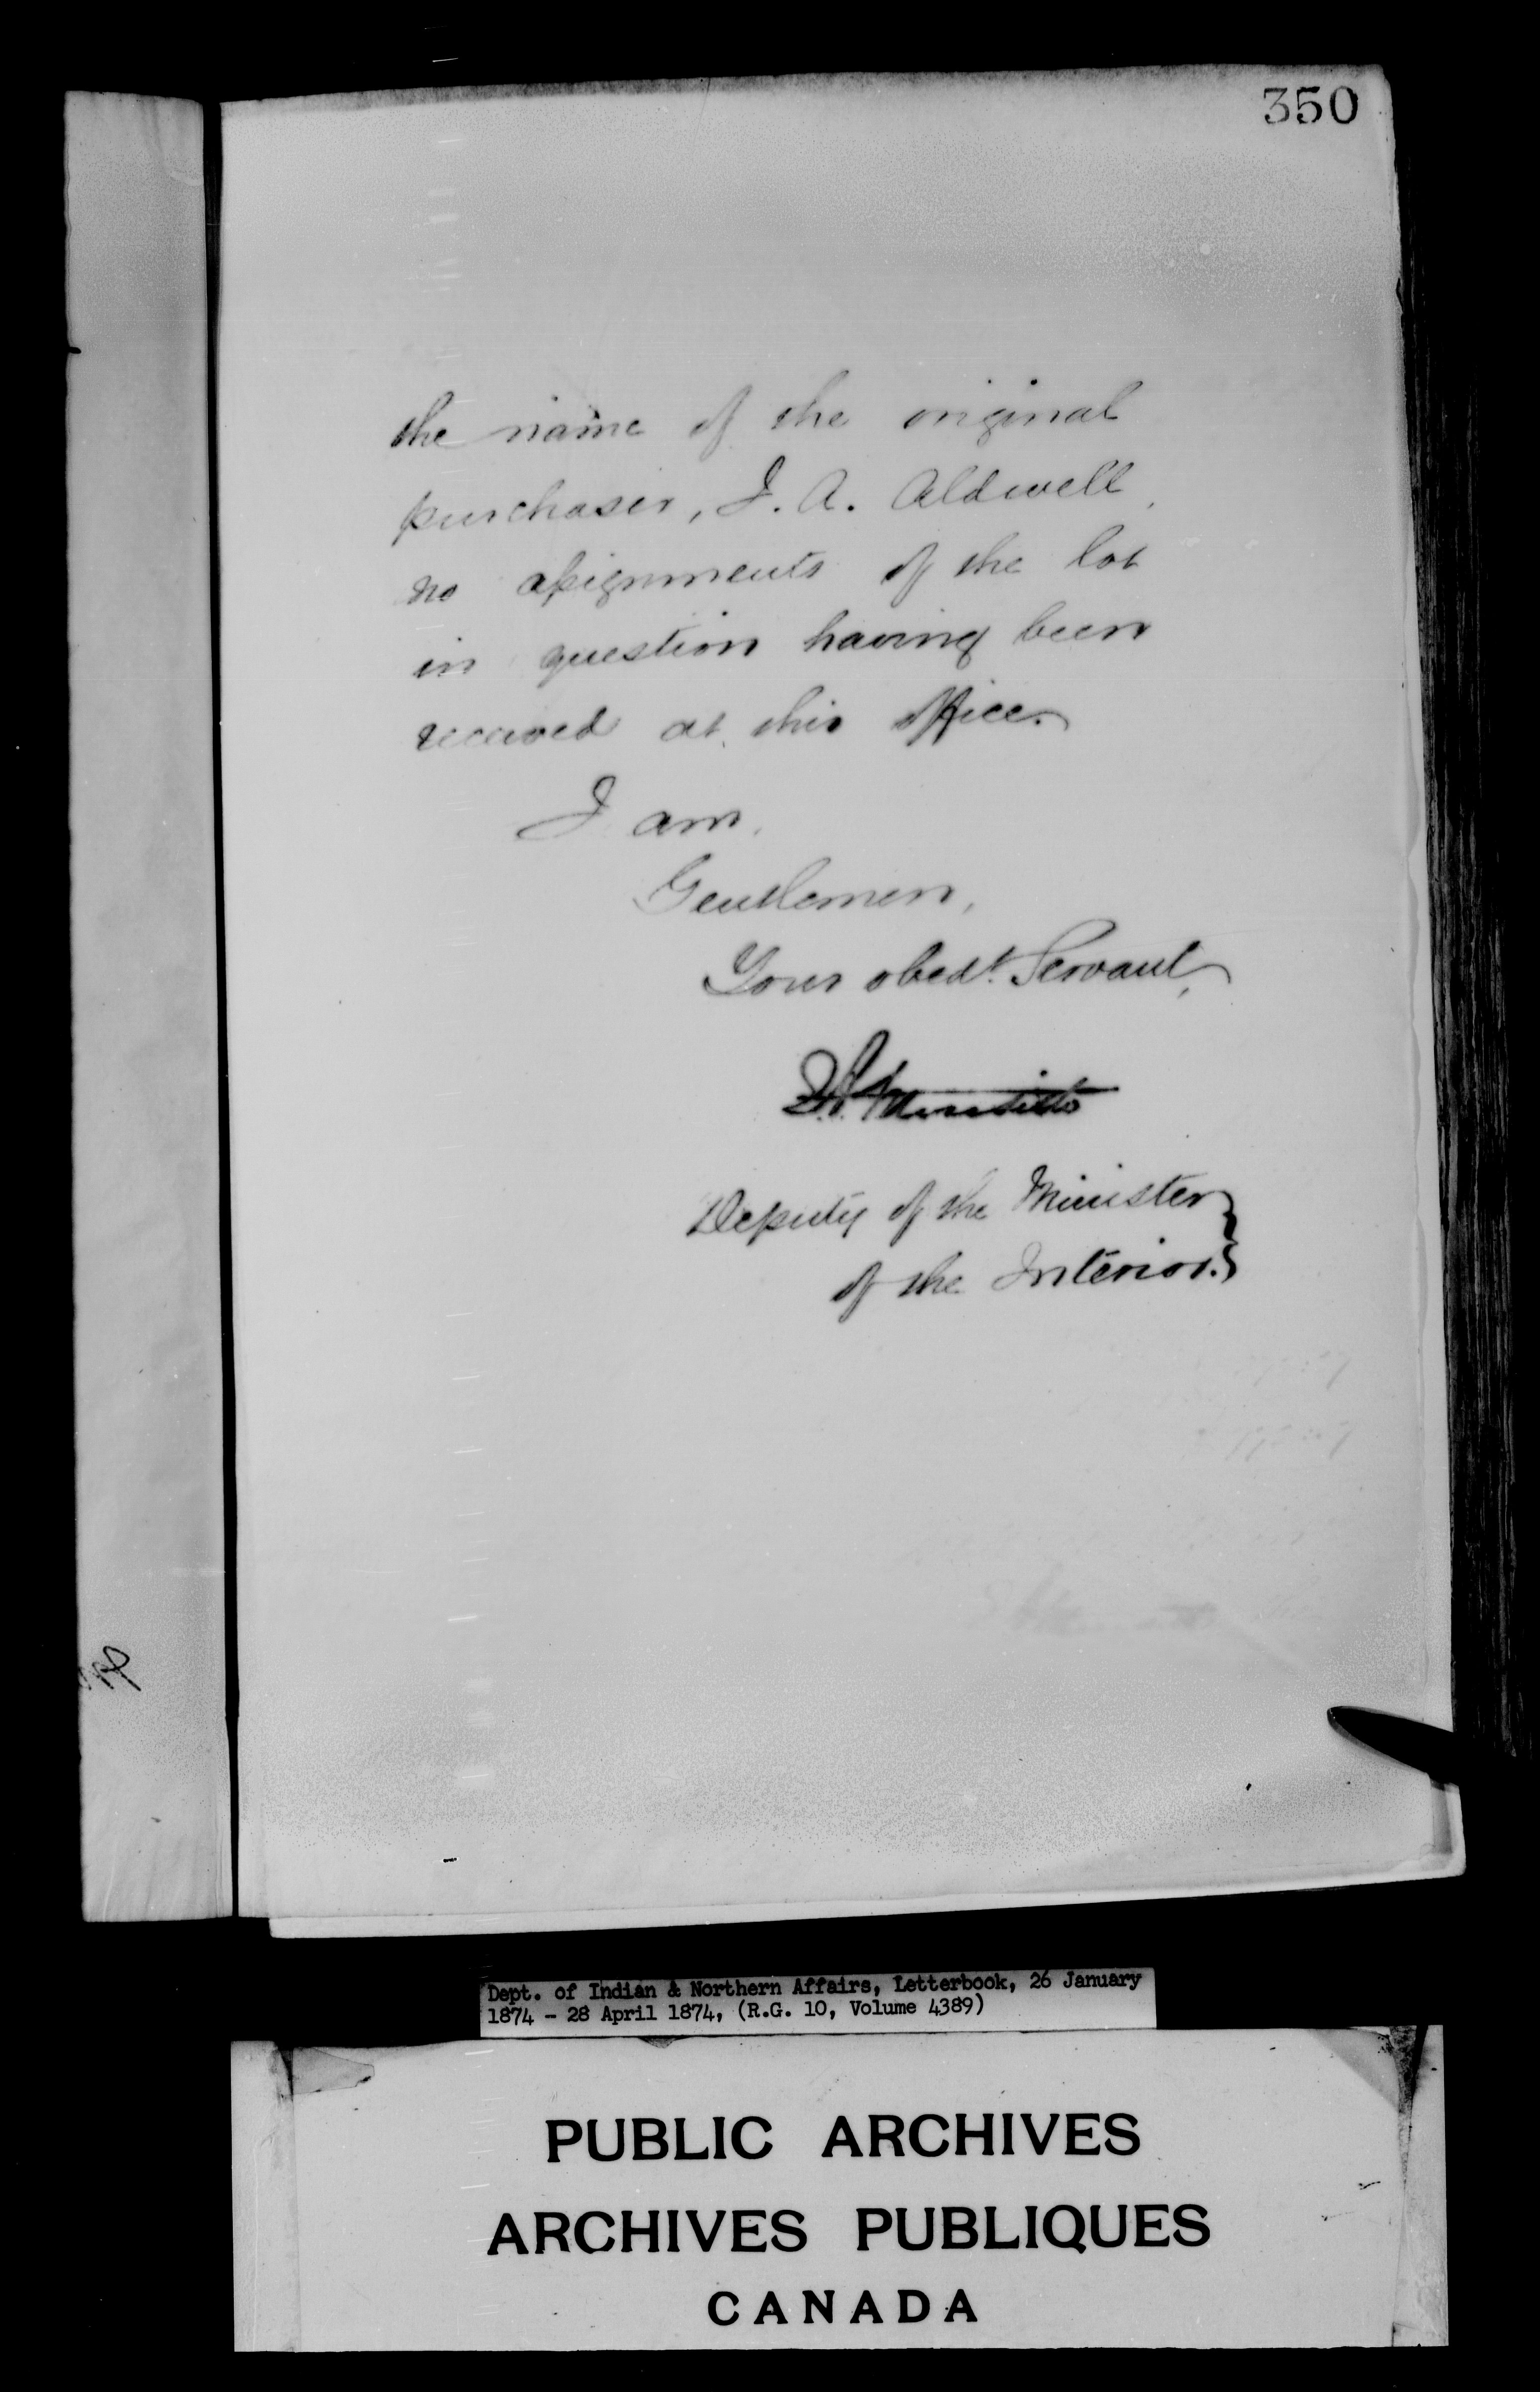 350
the name of the original
purchaser, J. A. Aldwell,
no assignments of the lot
in question having been
received at this office.
I am,
Gentlemen,
Your obedt. Servant,
Deputy of the Minister
of the Interior.
Dept. of Indian & Northern Affairs, Letterbook, 26 January
1874 - 28 April 1874, (R.G. 10, Volume 4389)
PUBLIC ARCHIVES
ARCHIVES PUBLIQUES
CANADA